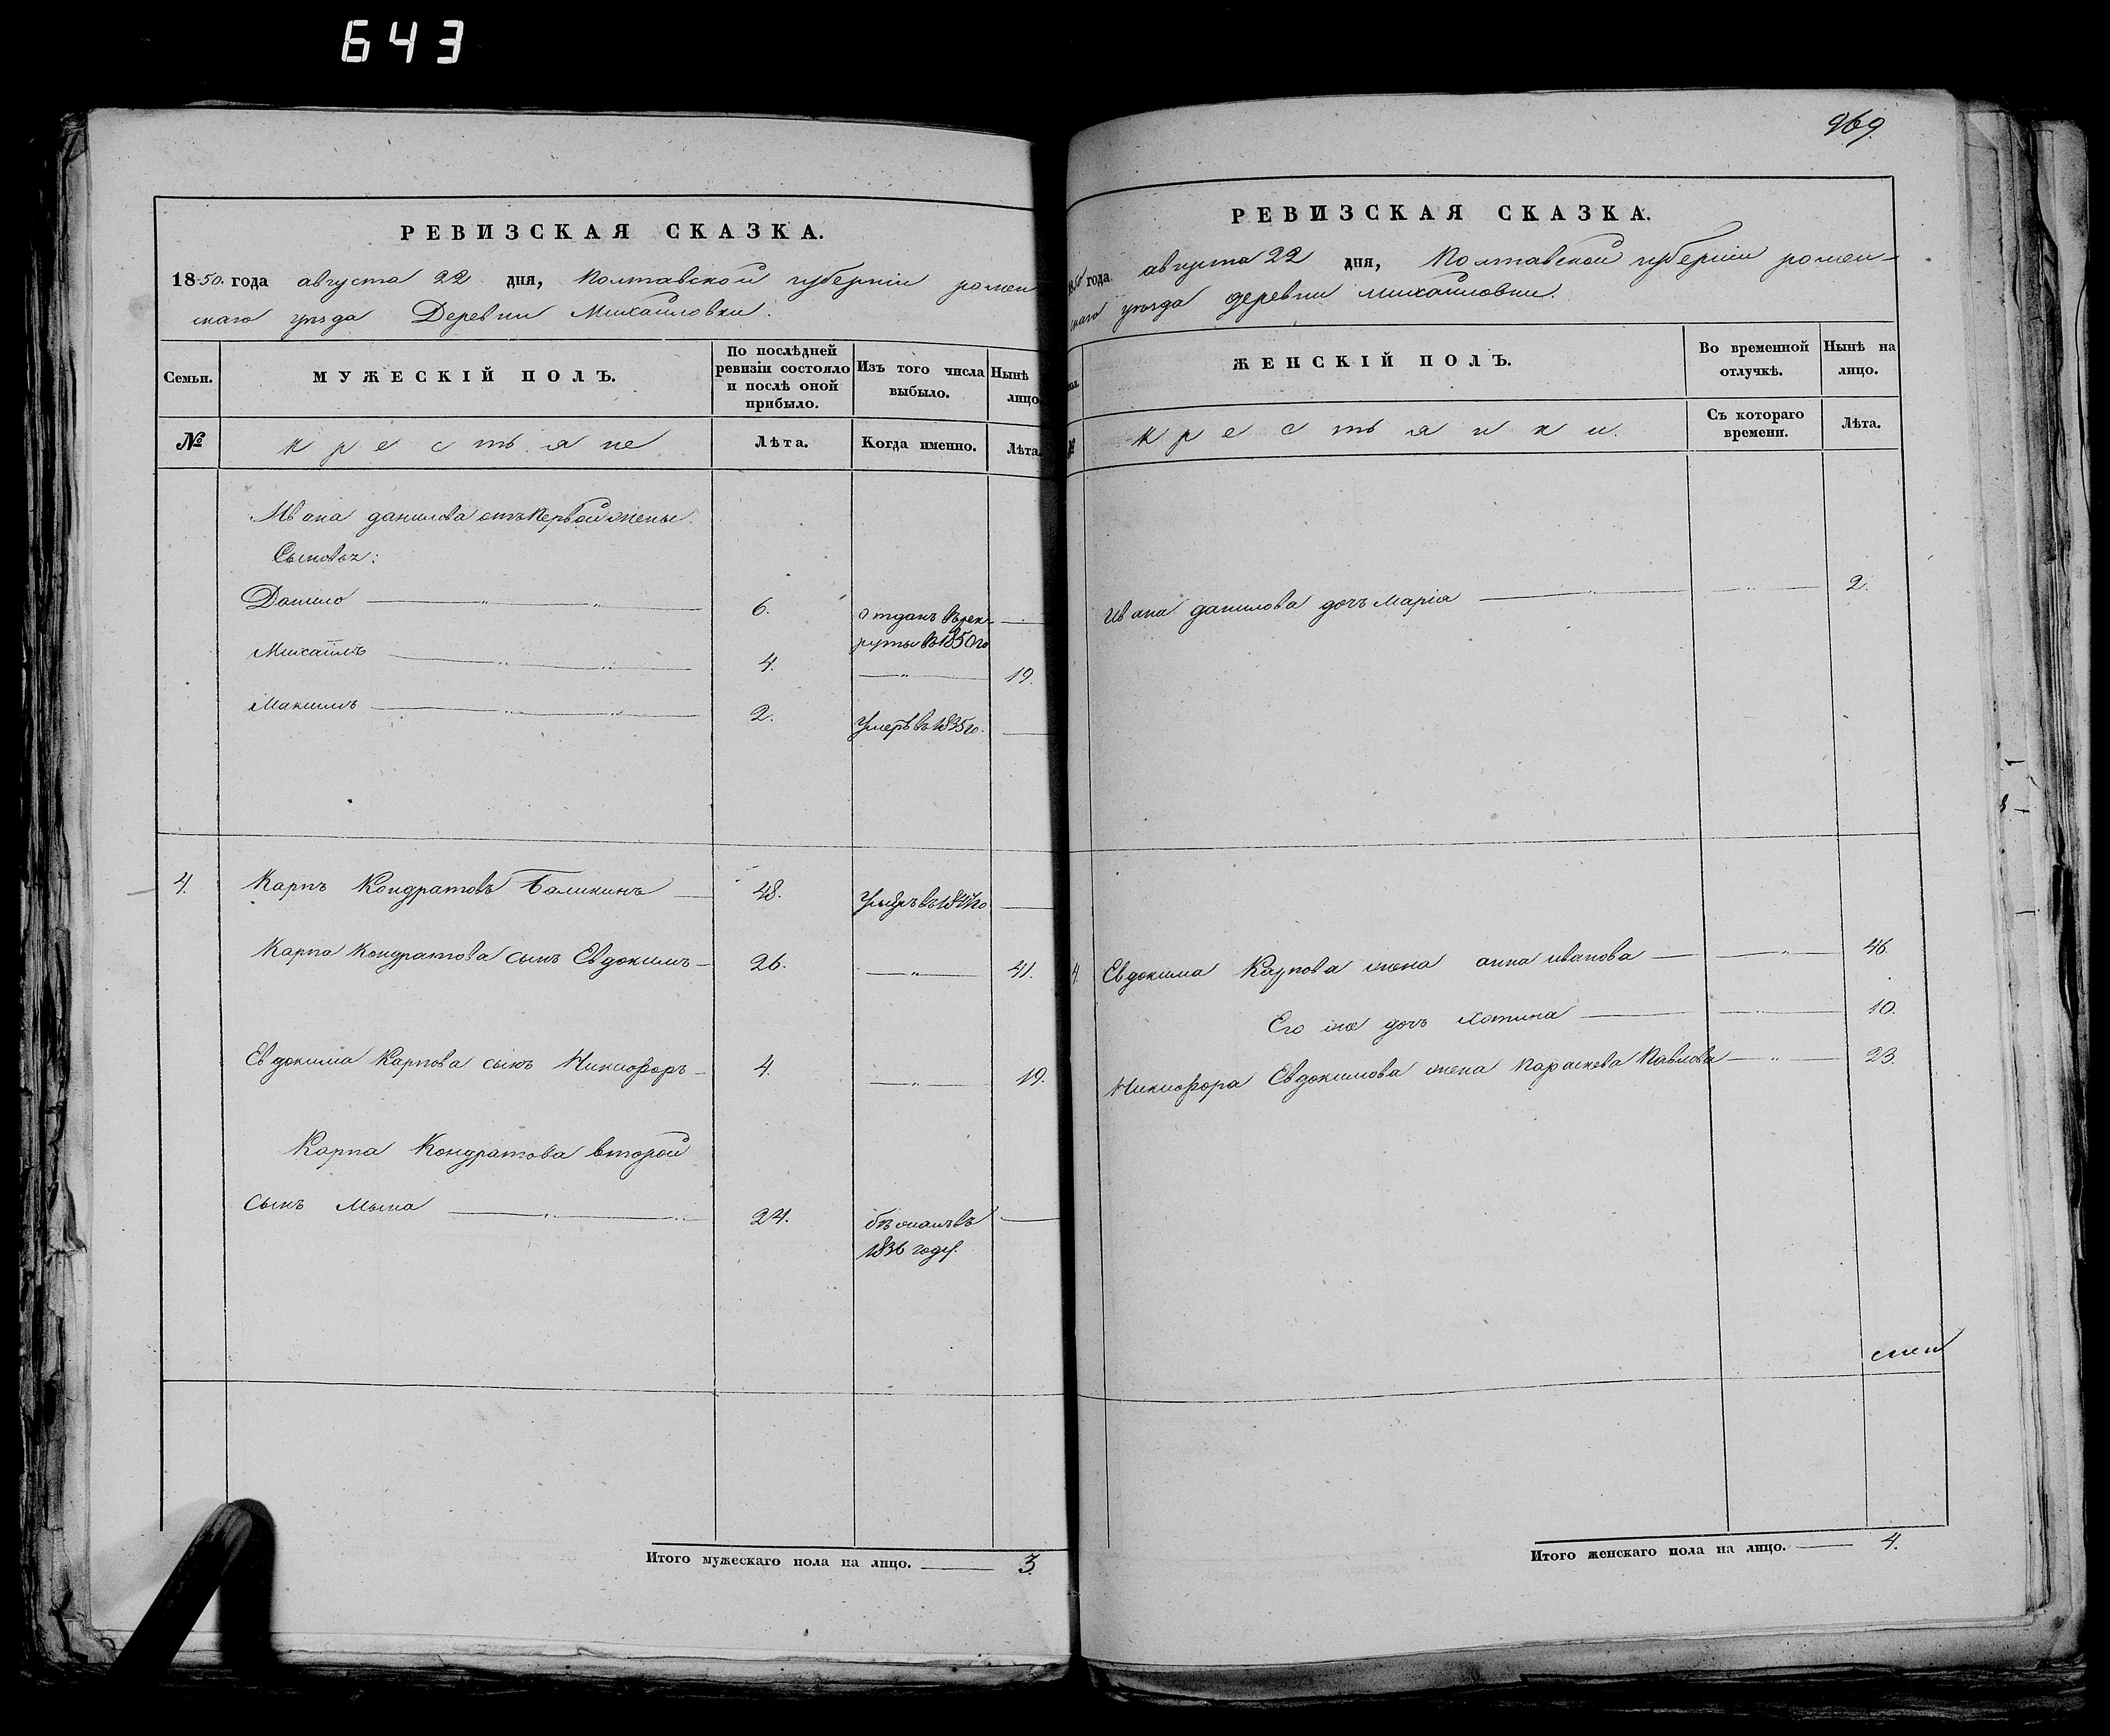 643
969.
РЕВИЗСКАЯ СКАЗКА.
1850. года августа 22 дня, Полтавской губерніи ромен
скаго уѣзда Деревни Михайловки.
Семьи.
МУЖЕСКІЙ ПОЛЪ.
По послѣдней
ревизіи состояло
и послѣ оной
прибыло.
Изъ того числа
выбыло.
Нынѣ
лицо
№
крестьяне
Лѣта.
Когда именно.
Лѣта.
Ивана данилова отъ первой жены
Сыновья:
Данило 6. отданъ въ рек
руты въ 1850 го
Михайлъ 4. 19.
Максимъ 2. Умеръ въ 1835 го.
4. Карпъ Кондратовъ 48.
Карпа Кондратова сынъ Евдокимъ 26. 41.
Евдокима Карпова сынъ Никифоръ 4. 19.
Карпа Кондратова второй
сынъ 24. бѣжалъ въ
1836 году.
Итого мужескаго пола на лицо. 3.
РЕВИЗСКАЯ СКАЗКА.
года августа 22 дня, Полтавской губерніи ромен-
скаго уѣзда деревни михайловки.
ЖЕНСКІЙ ПОЛЪ.
Во временной
отлучкѣ.
Нынѣ на
лицо.
№
крестьянки.
Съ котораго
времени.
Лѣта.
Ивана данилова дочь Марія 2.
4. Евдокима Карпова жена анна иванова 46.
Его же дочь 10.
Никифора Евдокимова жена Параскева Павлова 23.
Итого женскаго пола на лицо. 4.